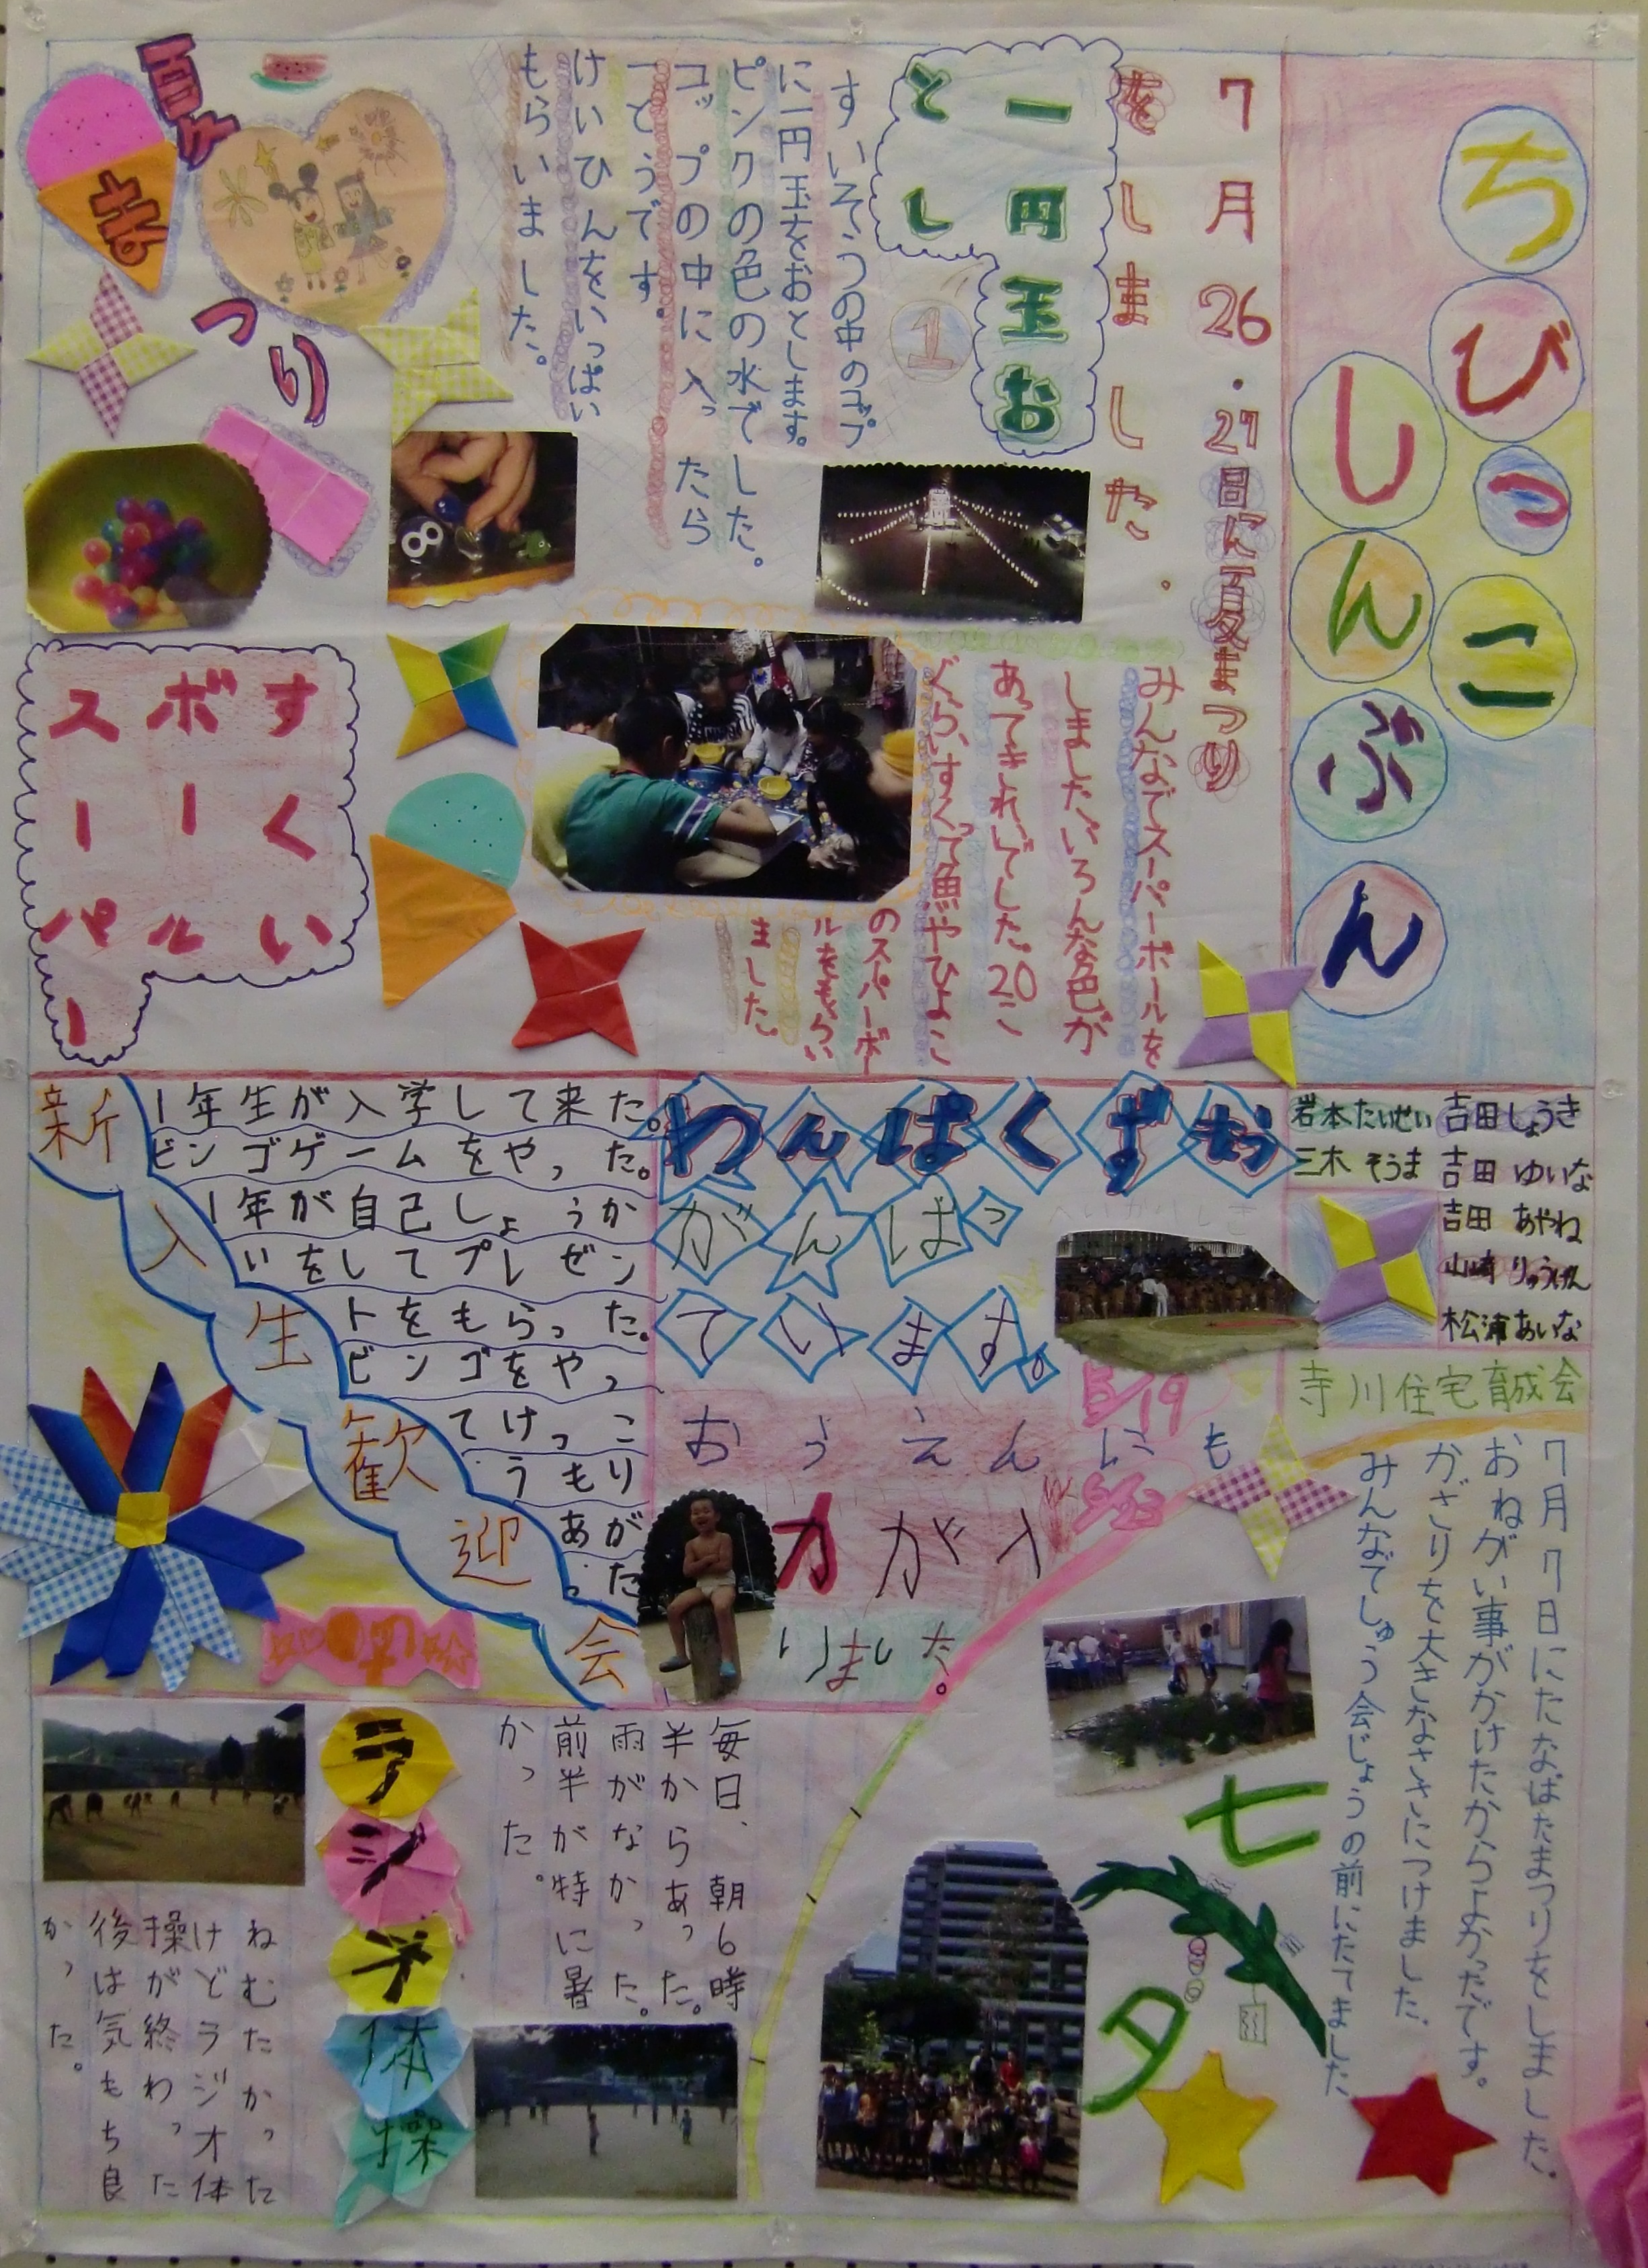 ちびっこ
しんぶん
7月26・27日に夏まつり
をしました。
一円玉お
とし
1
すいそうの中のコップ
に一円玉をおとします。
ピンクの色の水でした。
コップの中に入ったら
一とうです。
けいひんをいっぱい
もらいました。
夏
まつり
みんなでスーパーボールを
しました。いろんな色が
あってきれいでした。20こ
ぐらいすくって魚やひよこ
のスーパーボー
ルをもらい
ました。
すくい
ボール
スーパー
岩本たいせい 吉田しょうき
三木そうま 吉田ゆいな
吉田あやね
山崎りゅうげん
松浦あいな
寺川住宅育成会
わんぱくずもう
がんばっ
ています。
5/19
6/23
おうえんにも
力が入
りました。
新入生歓迎会
1年生が入学して来た。
ビンゴゲームをやった。
1年が自己しょうか
いをしてプレゼン
トをもらった。
ビンゴをやっ
てけっこ
うもり
あが
った
七夕
7月7日にたなばたまつりをしました。
おねがい事がかけたからよかったです。
かざりを大きなささにつけました。
みんなでしゅう会じょうの前にたてました
ラジオ体操
毎日、朝6時
半からあった。
雨がなかった。
前半が特に暑
かった。
ねむたかった
けどラジオ体
操が終わった
後は気もち良
かった。